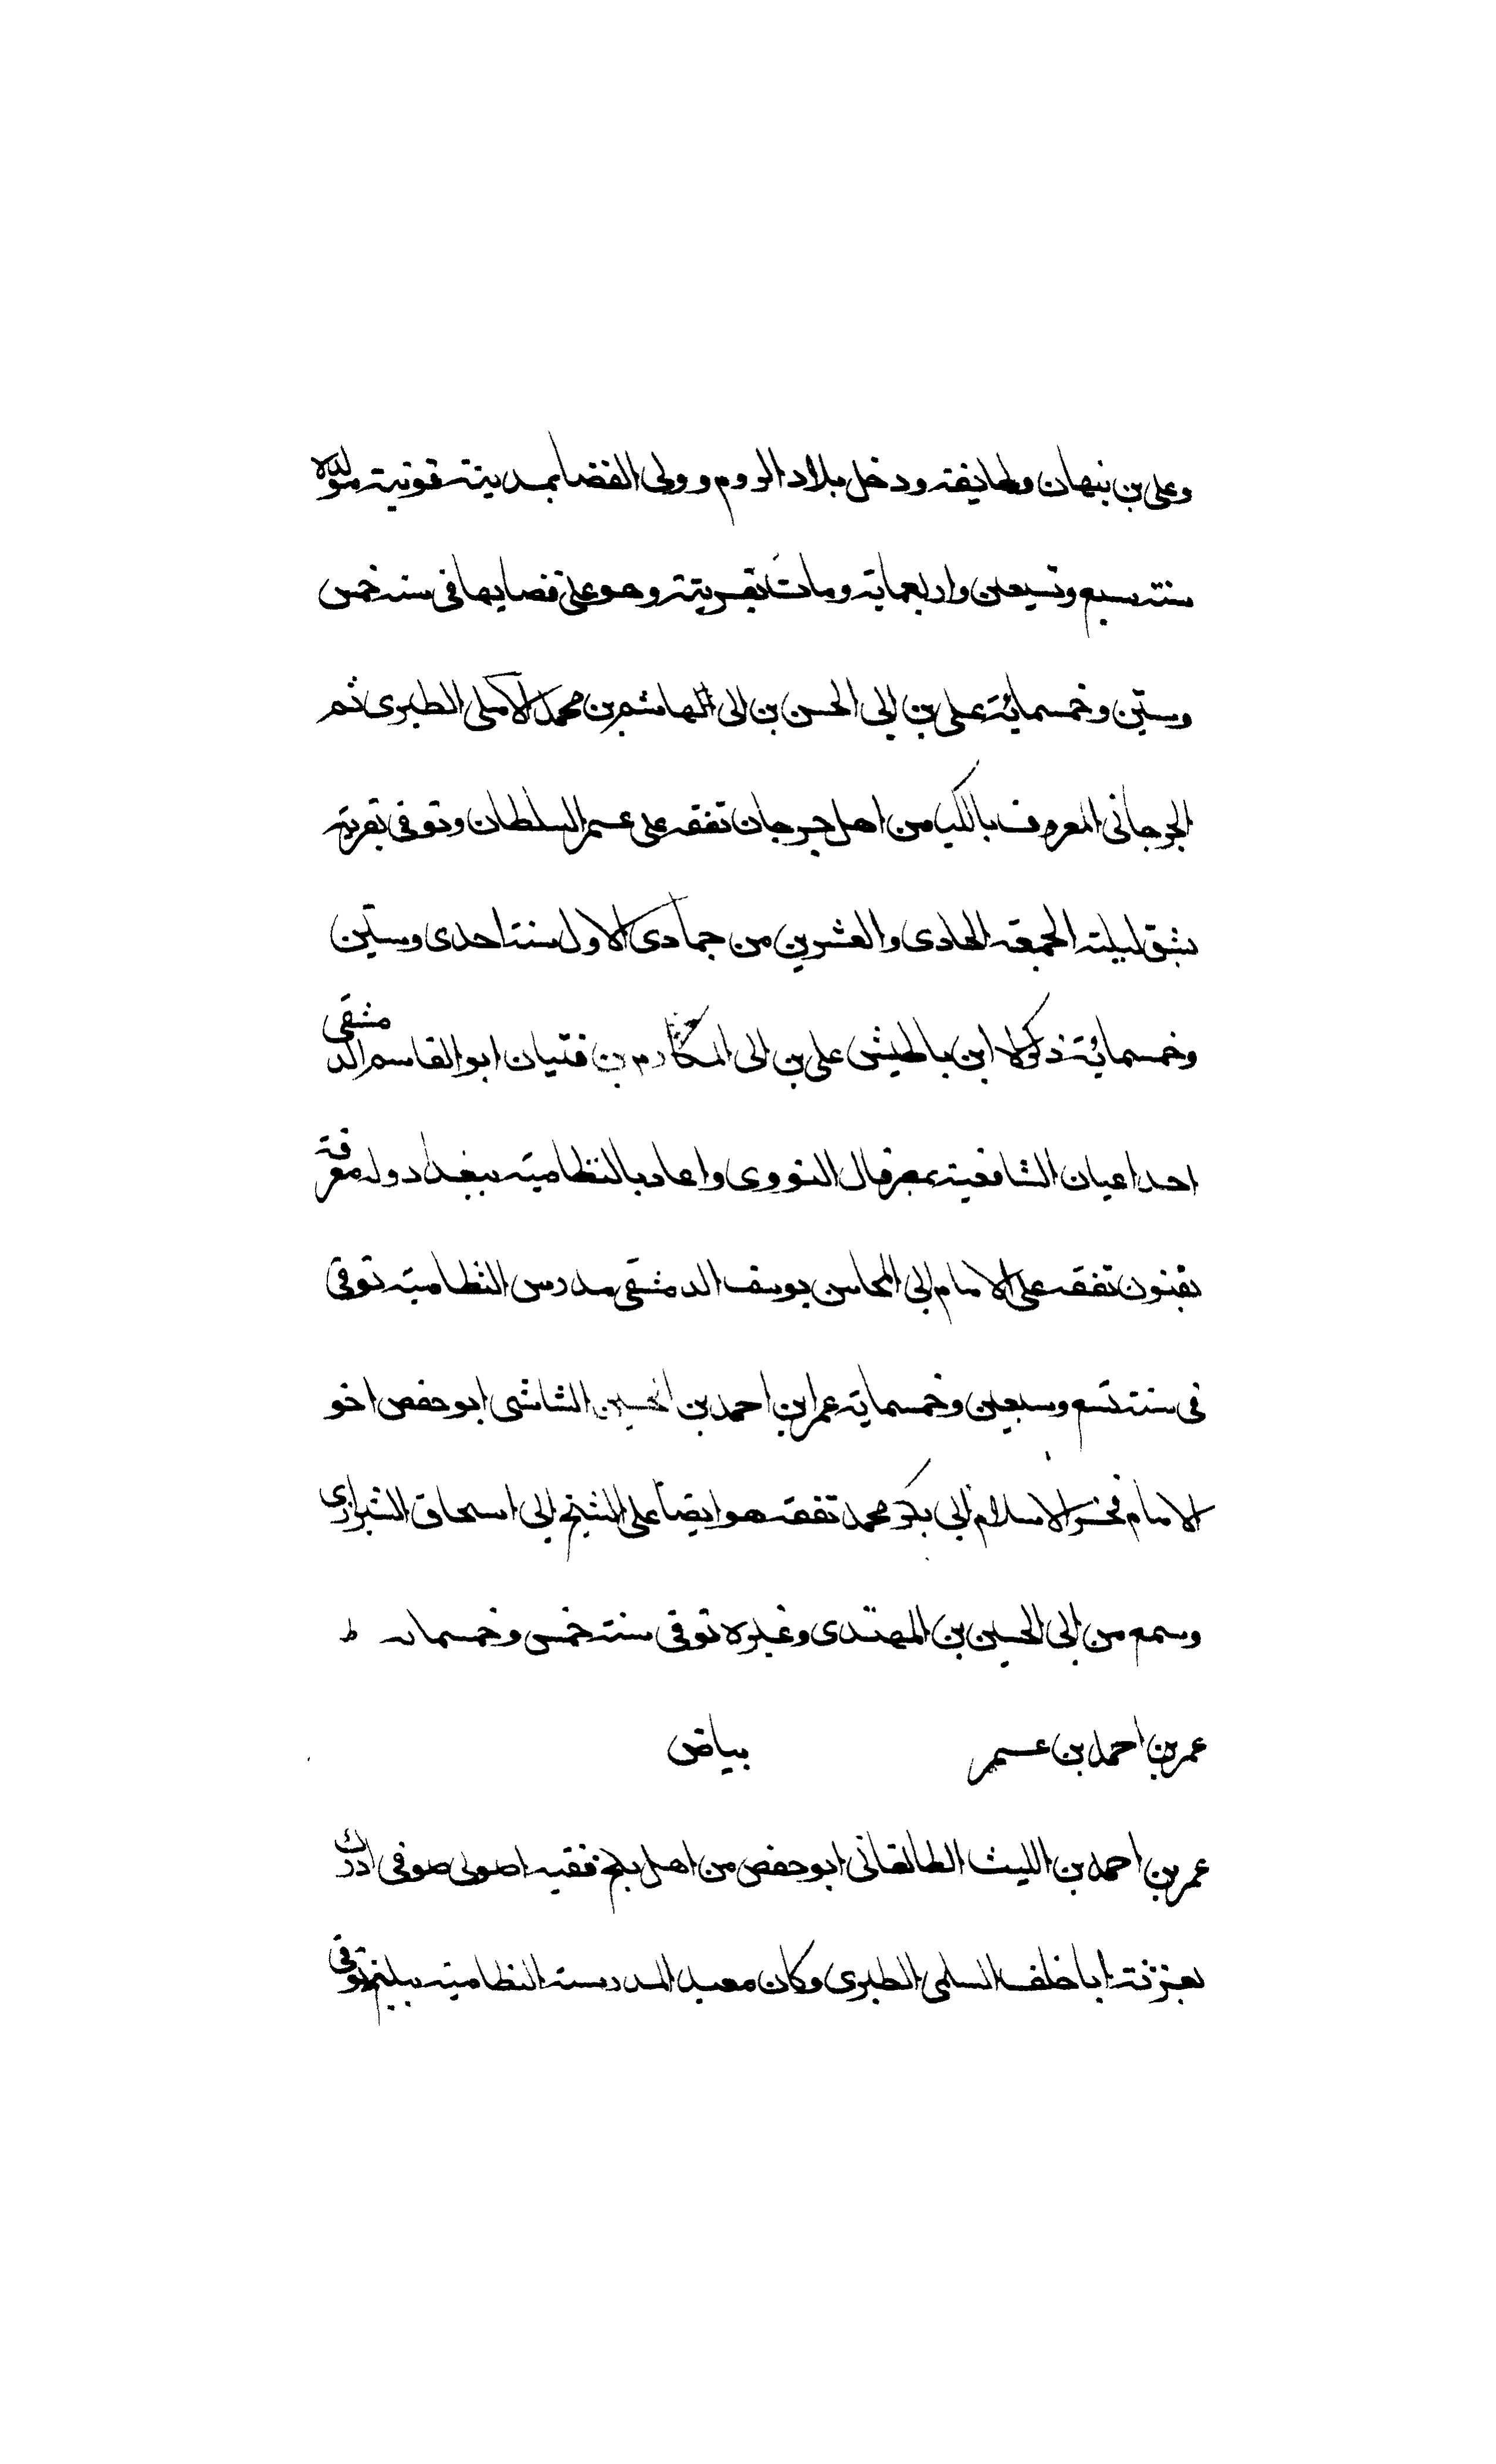 وعلى بن نبهان وطايفة ودخل بلاد الروم وولى القضا بمدينة قونية مولده
سنة سبع وتسعين واربعماية ومات بقريتة وهو على قضايها فى سنة خمس
وستين وخمسمائة على بن ابى الحسن بن ابى الهاشم بن محمد الآملى الطبرى ثم
الجرجانى المعروف بالكيا من اهل جرجان تفقه على عمر السلطان وتوفى بقرية
بشق ليلة الجمعة الحادى والعشرين من جمادى الاول سنة احدى وستين
وخمسمائة ذكره ابن باطيش على بن ابى المكارم بن فتيان ابو القاسم الدمشقى
احد اعيان الشافعية بمصر قال النووى واعاد بالنظامية ببغداد وله معرفة
بفنون تفقه على الامام ابى المحاسن يوسف الدمشقى مدرس النظامية توفى
فى سنة تسع وسبعين وخمسماية عمر ابن احمد بن الحسين الشاشى ابو حفص اخو
الامام فخر الاسلام ابى بكر محمد تفقه هو ايضاً على الشيخ ابى اسحاق الشيرازى
وسمع من ابى الحسين بن المهتدى وغيره توفى سنة خمس وخمسماىه
عمر بن احمد بن عمر بياض
عمر بن احمد بن الليث الطالقانى ابو حفص من اهل بلخ فقيه اصولى صوفى ادرك
بغزنة ابا خلف السلمى الطبرى وكان معيد المدرسة النظامية ببلخ توفى